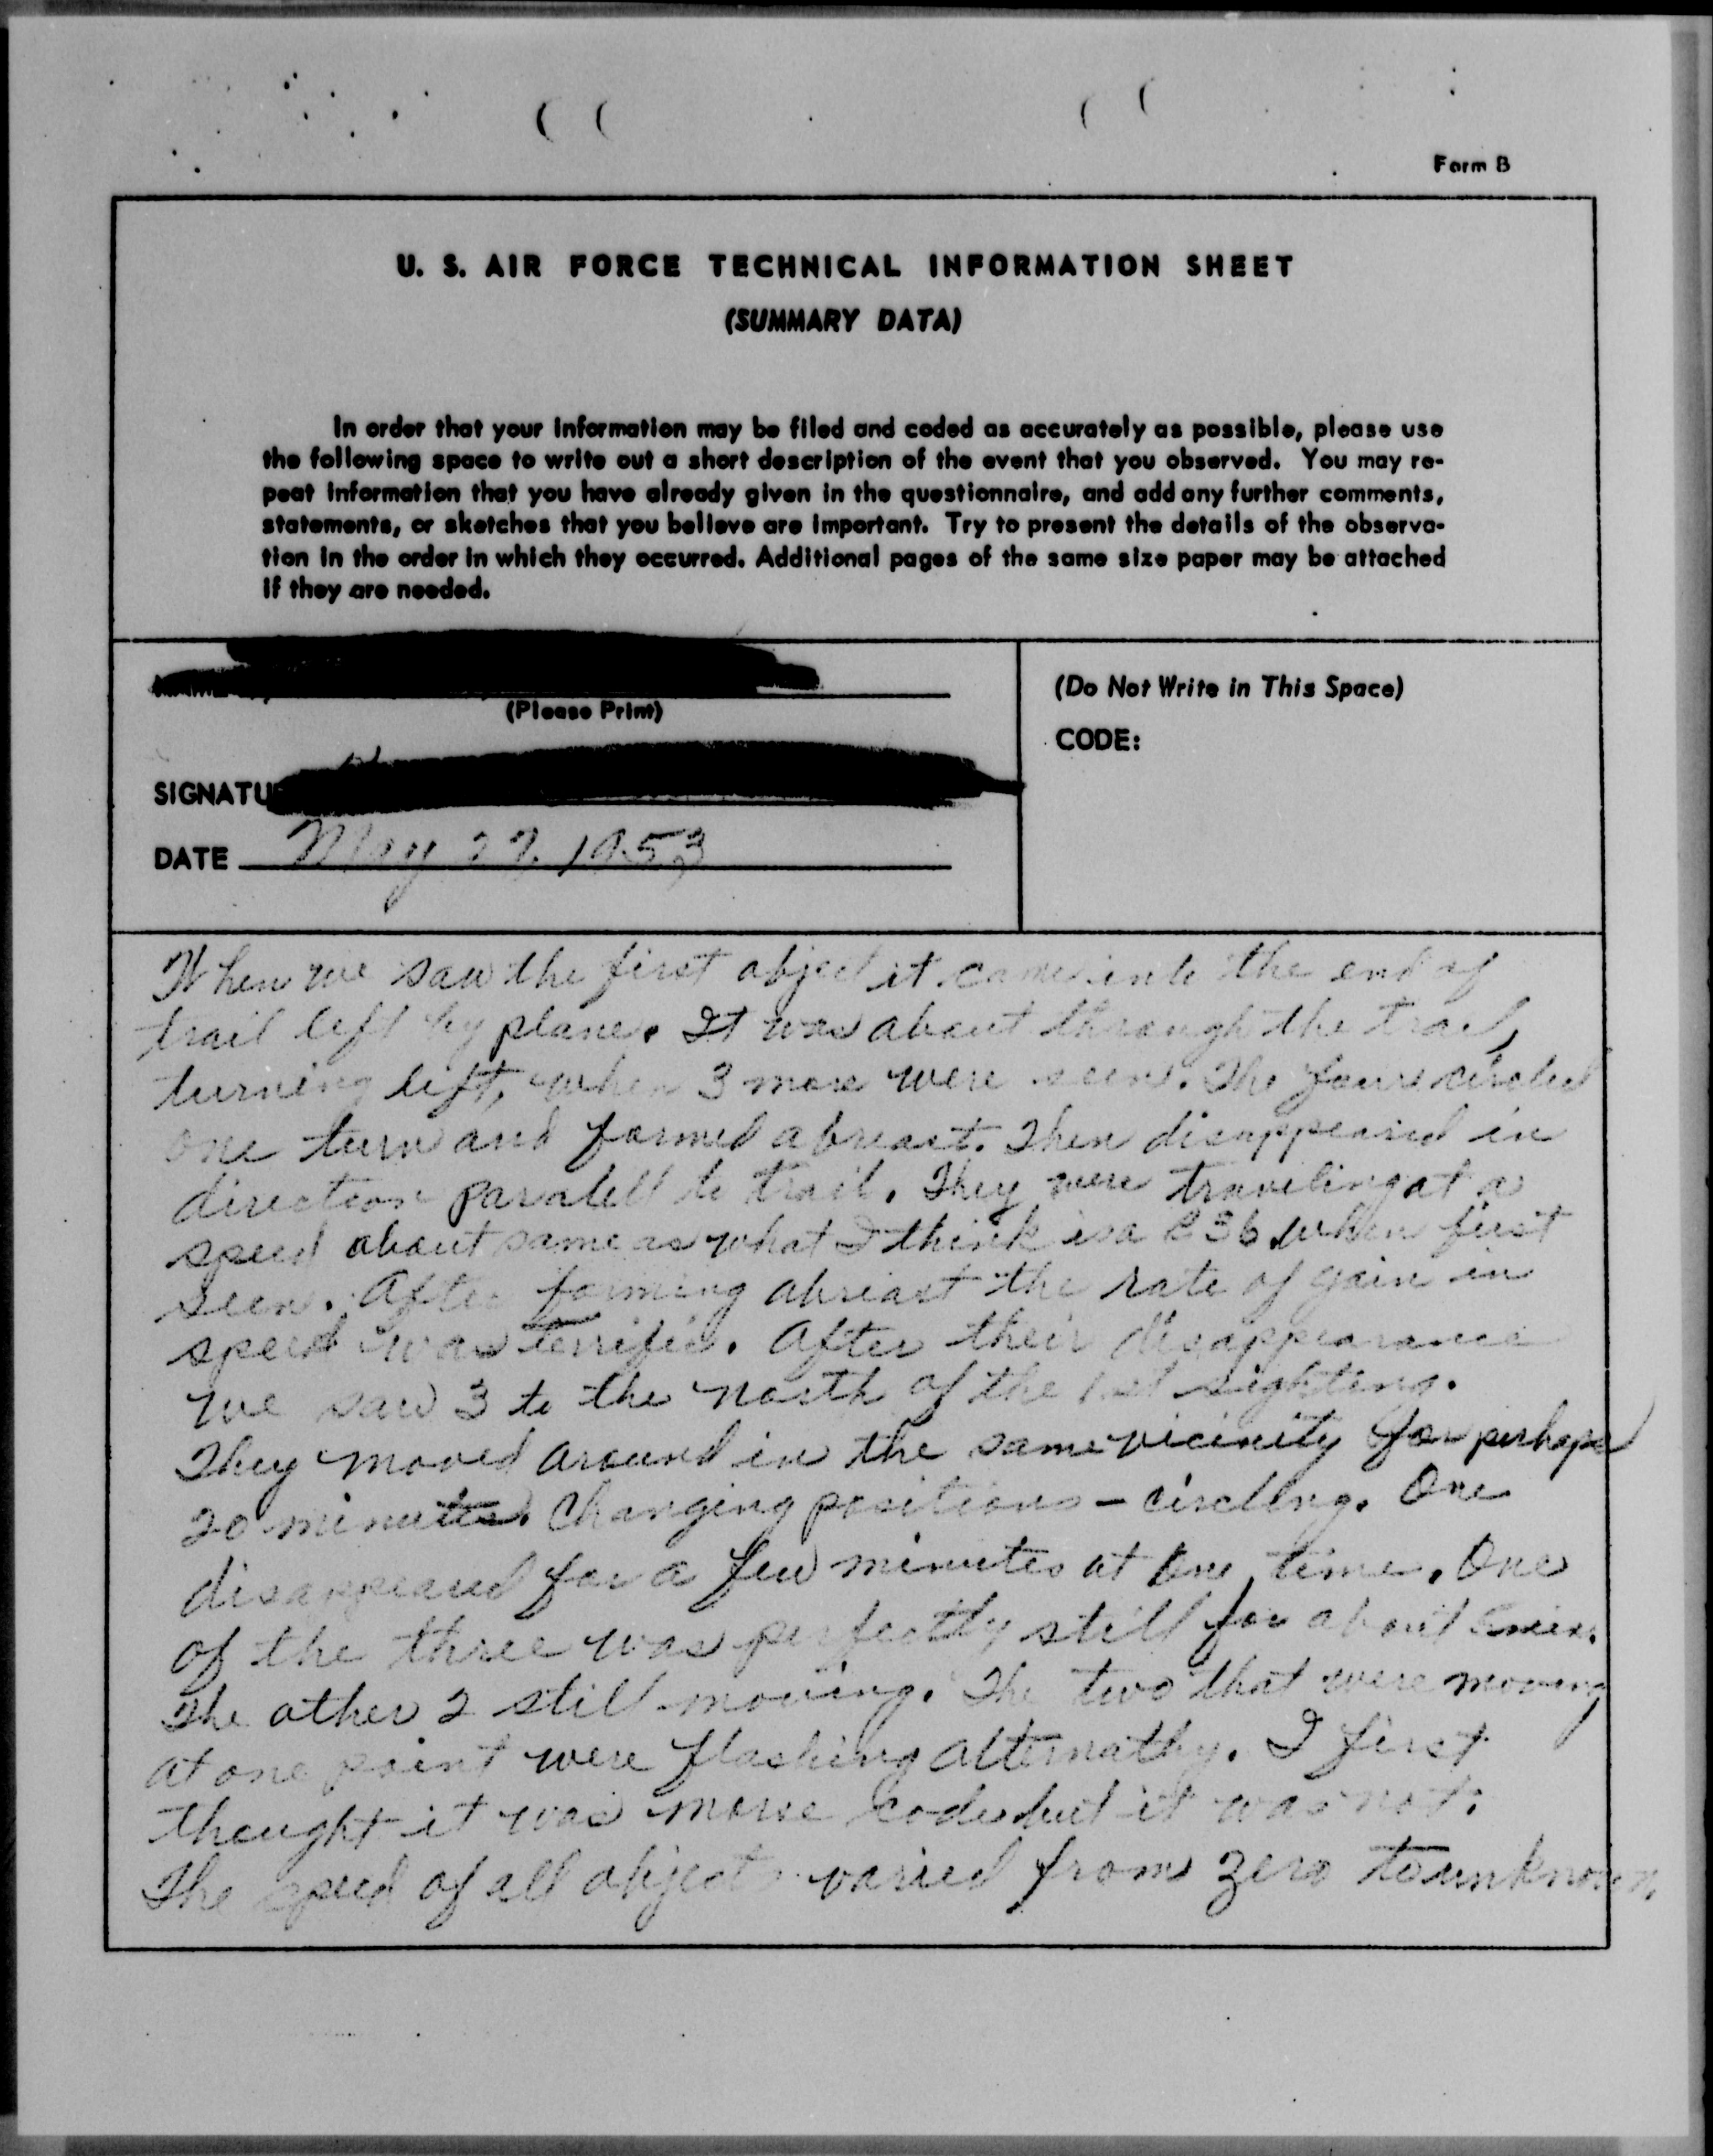 Form B
U. S. AIR FORCE TECHNICAL INFORMATION SHEET
(SUMMARY DATA)
In order that your information may be filed and coded as accurately as possible, please use
the following space to write out a short description of the event that you observed. You may re-
peat information that you have already given in the questionnaire, and add any further comments,
statements, or sketches that you believe are important. Try to present the details of the observa-
tion in the order in which they occurred. Additional pages of the same size paper may be attached
if they are needed.
(Please Print)
(Do Not Write in This Space)
CODE:
SIGNATU
DATE May 1953
When we saw the first object it came into the end of
trail left by plane. It was about through the trail,
turning left, when 3 more were seen. The four circled
one turn and formed abreast. Then disappeared in
direction paralell to trail. They were traveling at a
speed about same as what I think is a 36 when first
seen. After forming abreast the rate of gain in
speed was terrific. After their disappearance
we saw 3 to the north of the 1st sighting.
They moved around in the same vicinity for perhaps
20 minutes. Changing positions - circling. One
disappeared for a few minutes at one time. One
of the three was perfectly still for about min.
The other 2 still moving. The two that were moving
at one point were flashing alternathy. I first
thought it was morse code but it was not.
The speed of all objects varied from zero to unknown.